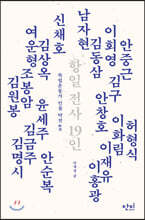 안중근 허형식
이회영 김구 이화림
김동삼 안창호 이재유
남자현 이홍광
항일 전사 19인
신채호
김상옥 윤세주 안순복
여운형 조봉암 김금주
김원봉 김명시
단비